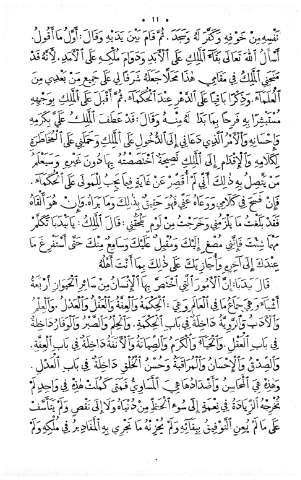 • ١١ •
نفسه من خوفه وكفّر له وسجد. ثم قام بين يديه وقال: أوّل ما أقول
أسأل الله تعالى بقاء الملك على الأبد ودوام ملكه على الأمد. لأنه قد
منحني الملك في مقامي هذا محلّا جعله شرفا لي على جميع من بعدي من
العلماء. وذكرا باقيا على الدهر عند الحكماء. ثم أقبل على الملك بوجهه
مستبشرا به فرحا بما بدا له منه وقال: قد عطف الملك عليّ بكرمه
وإحسانه والأمر الذي دعاني إلى الدخول على الملك وحملني على المخاطرة
بكلامه والإقدام إلى الملك نصيحة اختصصته بها دون غيره وسيعلم
من يتصل به ذلك أني لم أقصر عن غاية فيما يجب للمولى على الحكماء.
فإن فسح في كلامي ووعاه عني فهو حقيق بذلك وما يراه. وإن هو ألقاه
فقد بلغت ما يلزمني وخرجت من لوم يلحقني. قال الملك: يا بيدبا تكلم
مهما شئت فإنني مصغ إليك ومقبل عليك وسامع منك حتى أستفرغ ما
عندك إلى آخره وأجازيك على ذلك بما أنت أهله
قال بيدبا: إن الأمور التي اختصّ بها الإنسان من سائر الحيوان أربعة
أشياء وهي جماع ما في العالم وهي: الحكمة والعفة والعقل والعدل. والعلم
والأدب والرويّة داخلة في باب الحكمة. والحلم والصبر والوقار داخلة
في باب العقل. والحياء والكرم والصيانة والأنفة داخلة في باب العفة.
والصدق والإحسان والمراقبة وحسن الخلق داخلة في باب العدل.
وهذه هي المحاسن وأضدادها هي المساوئ فمتى كملت هذه في واحد لم
تخرجه الزيادة في نعمة إلى سوء الحظ من دنياه ولا إلى نقص ولم يتأسف
على ما لم يعن التوفيق ببقائه ولم يحزنه ما تجري به المقادير في ملكه ولم